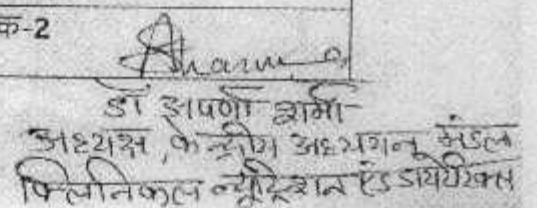 क-2
Sharma
डॉ अपर्णा शर्मा
अध्यक्ष, केन्द्रीय अध्ययन मंडल
क्लिनिकल न्यूट्रिशन एंड डायटेटिक्स